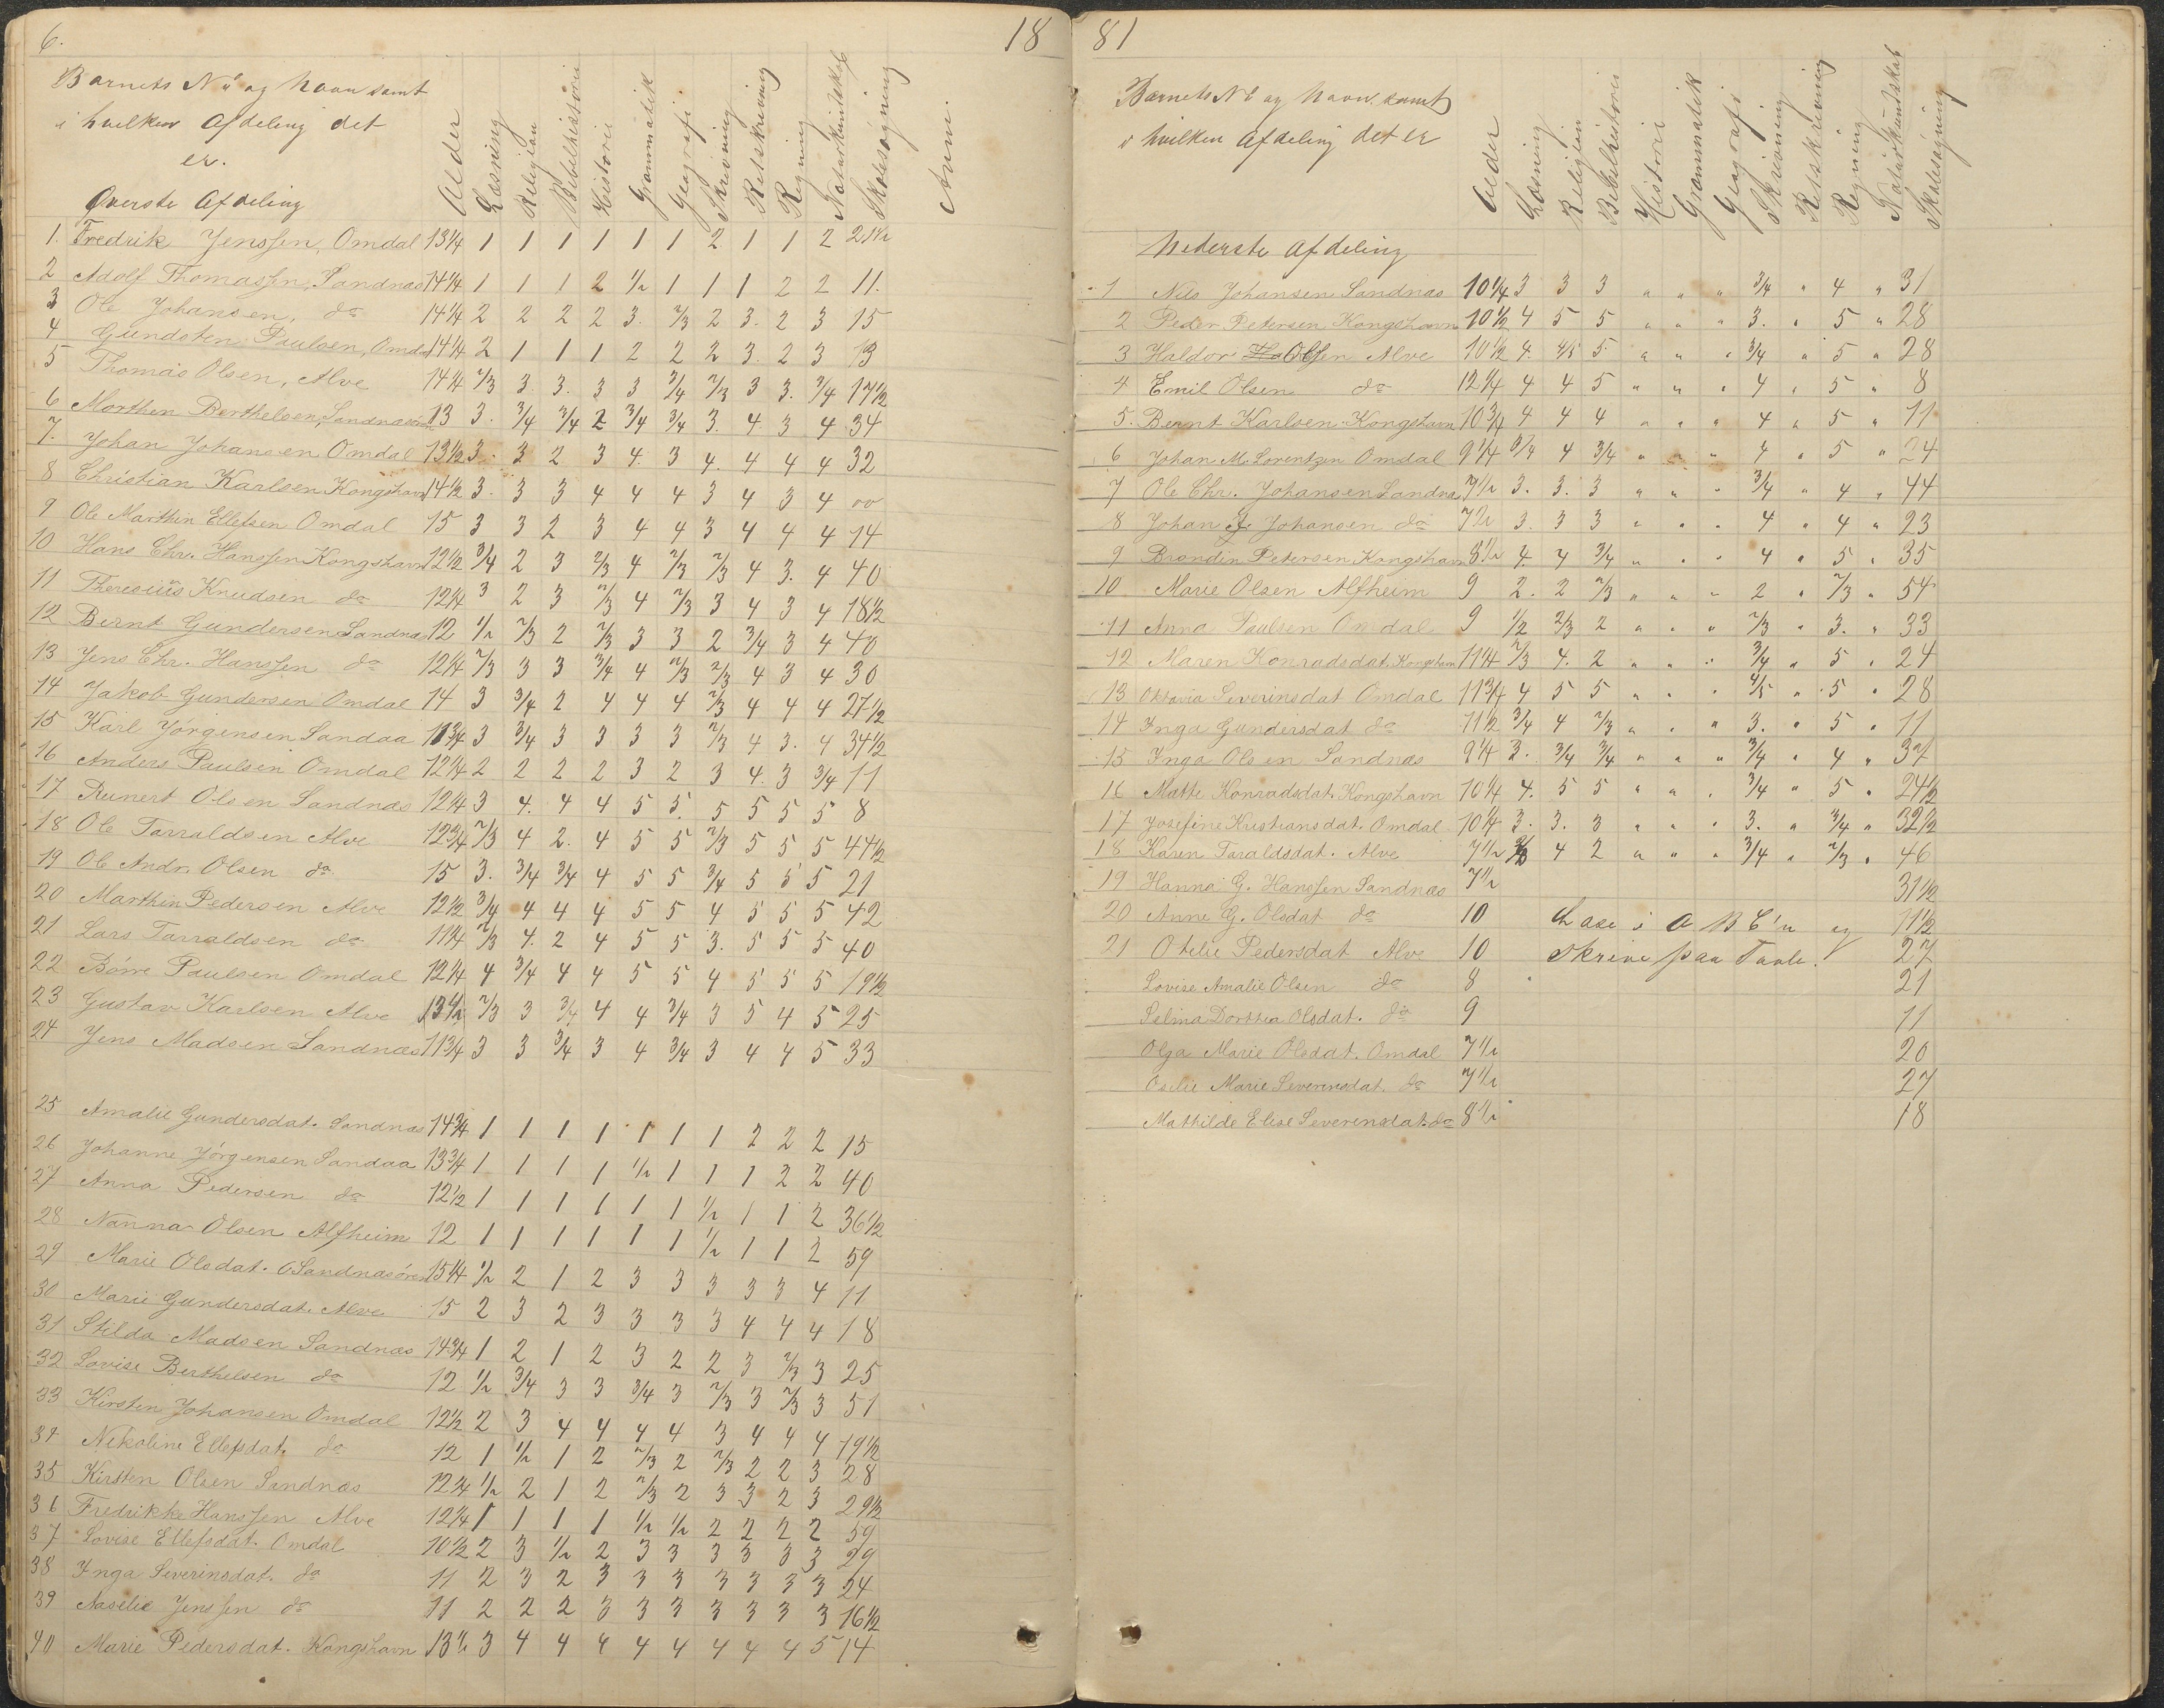 6.
18
Barnets No og Navn samt
i hvilken Afdeling det
er.
Alder Læsning Religion Bibelhistorie Historie Grammatik Geografi Skrivning Retskrivning Regning Naturkundskab Skolesøgning Anm.
Øverste Afdeling
1. Fredrik Jenssen, Omdal 13 1/4 1 1 1 1 1 1 2 1 1 2 21 1/2
2 Adolf Thomassen, Sandnæs 14 1/4 1 1 1 2 1/2 1 1 1 2 2 11.
3 Ole Johansen, do 14 1/4 2 2 2 2 3. 2/3 2 3. 2 3 15
4 Gundsten Paulsen, Omdal 14 1/4 2 1 1 1 2 2 2 3. 2 3 13
5 Thomas Olsen, Alve 14 1/4 2/3 3. 3. 3 3 3/4 2/3 3 3. 3/4 17 1/2
6 Morthen Berthelsen, Sandnæsøren 13 3. 3/4 3/4 2 3/4 3/4 3. 4. 3 4 34
7. Johan Johansen Omdal 13 1/2 3. 3 2 3 4. 3 4. 4 4 4 32
8 Christian Karlsen Kongshavn 14 1/2 3. 3 3 4 4 4 3 4 3 4 00
9 Ole Marthin Ellefsen Omdal 15 3 3 2 3 4 4 3 4 4 4 14
10 Hans Chr. Hanssen Kongshavn 12 1/2 3/4 2 3 2/3 4 2/3 2/3 4 3. 4 40
11 Theresius Knudsen do 12 1/4 3 2 3 2/3 4 2/3 3 4 3 4 18 1/2
12 Bernt Gundersen Sandnæs 12 1/2 2/3 2 2/3 3 3 2 3/4 3 4 40
13 Jens Chr. Hanssen do 12 1/4 2/3 3 3 3/4 4 2/3 2/3 4 3 4 30
14 Jakob Gundersen Omdal 14 3 3/4 2 4 4 4 2/3 4 4 4 27 1/2
15 Karl Jörgensen Sandaa 11 3/4 3 3/4 3 3 3 3 2/3 4 3. 4 34 1/2
16 Anders Paulsen Omdal 12 1/4 2 2 2 2 3 2 3 4. 3 3/4 11
17 Runert Olsen Sandnæs 12 1/4 3 4. 4 4 5 5. 5 5 5 5 8
18 Ole Tarraldsen Alve 12 3/4 2/3 4 2. 4 5 5 2/3 5 5 5 44 1/2
19 Ole Andr. Olsen do 15 3. 3/4 3/4 4 5 5 3/4 5 5 5 21
20 Marthin Pedersen Alve 12 1/2 3/4 4 4 4 5 5 4 5 5 5 42
21 Lars Tarraldsen do 11 1/4 2/3 4. 2 4 5 5 3. 5 5 5 40
22 Börre Paulsen Omdal 12 1/4 4 3/4 4 4 5 5 4 5 5 5 19 1/2
23 Gustav Karlsen Alve 13 1/2 2/3 3 3/4 4 4 3/4 3 5 4 5 25
24 Jens Madsen Sandnæs 11 3/4 3 3 3/4 3 4 3/4 3 4 4 5 33
25 Amalie Gundersdat. Sandnæs 14 3/4 1 1 1 1 1 1 1 2 2 2 15
26 Johanne Jörgensen Sandaa 13 3/4 1 1 1 1 1/2 1 1 1 2 2 40
27 Anna Pedersen do 12 1/2 1 1 1 1 1 1 1/2 1 1 2 36 1/2
28 Nanna Olsen Alfheim 12 1 1 1 1 1 1 1/2 1 1 2 59
29 Marie Olsdat. Sandnæsören 15 1/4 1/2 2 1 2 3 3 3 3 3 4 11
30 Marie Gundersdat. Alve 15 2 3 2 3 3 3 3 4 4 4 18
31 Stilda Madsen Sandnæs 14 3/4 1 2 1 2 3 2 2 3 2/3 3 25
32 Lovise Berthelsen do 12 1/2 3/4 3 3 3/4 3 2/3 3 2/3 3 51
33 Kirsten Johansen Omdal 12 1/2 2 3 4 4 4 4 3 4 4 4 19 1/2
34 Nikoline Ellefsdat. do 12 1 1/2 1 2 2/3 2 2/3 2 2 3 28
35 Kirsten Olsen Sandnæs 12 1/4 1/2 2 1 2 2/3 2 3 3 2 3 29 1/2
36 Fredrikke Hanssen Alve 12 1/4 1 1 1 1 1/2 1/2 2 2 2 2 59
37 Lovise Ellefsdat. Omdal 10 1/2 2 3 1/2 2 3 3 3 3 3 3 29
38 Inga Severinsdat. do 11 2 3 2 3 3 3 3 3 3 3 24
39 Aaselie Jenssen do 11 2 2 2 3 3 3 3 3 3 3 16 1/2
40 Marie Pedersdat. Kongshavn 13 1/2 3 4 4 4 4 4 4 4 4 5 14
81
Barnets No og Navn samt
i hvilken Afdeling det er
Alder Læsning Religion Bibelhistorie Historie Grammatik Geografi Skrivning Retskrivning Regning Naturkundskab Skolesøgning
Nederste Afdeling
1 Nils Johansen Sandnæs 10 1/4 3 3 3 " " " 3/4 " 4 " 31
2 Peder Petersen Kongshavn 10 1/2 4 5 5 " " " 3. " 5 " 28
3 Haldor Olsen Alve 10 1/2 4. 4/5 5 " " " 3/4 " 5 " 28
4 Emil Olsen do 12 1/4 4 4 5 " " " 4 " 5 " 8
5. Bernt Karlsen Kongshavn 10 3/4 4 4 4 " " " 4 " 5 " 11
6 Johan M. Lorentzen Omdal 9 1/4 3/4 4 3/4 " " " 4 " 5 " 24
7 Ole Chr. Johansen Sandnæs 7 1/2 3. 3. 3 " " " 3/4 " 4 " 44
8 Johan J. Johansen do 7 1/2 3. 3 3 " " " 4 " 4 " 23
9 Brondin Petersen Kongshavn 8 1/2 4. 4 3/4 " " " 4 " 5 " 35
10 Marie Olsen Alfheim 9 2. 2 2/3 " " " 2 " 2/3 " 54
11 Anna Paulsen Omdal 9 1/2 2/3 2 " " " 2/3 " 3. " 33
12 Maren Konradsdat. Kongshavn 11 1/4 2/3 4. 2 " " " 3/4 " 5 " 24
13 Oktavia Severinsdat Omdal 11 3/4 4 5 5 " " " 4/5 " 5 " 28
14 Inga Gundersdat do 11 1/2 3/4 4 2/3 " " " 3. " 5 " 11
15 Inga Olsen Sandnæs 9 1/4 3. 3/4 3/4 " " " 3/4 " 4 " 37
16 Mathe Konradsdat. Kongshavn 10 1/4 4. 5 5 " " " 3/4 " 5 " 24 1/2
17 Josefine Kristiansdat. Omdal 10 1/4 3. 3. 3 " " " 3. " 3/4 " 32 1/2
18 Karen Taraldsdat. Alve 7 1/2 4 2 " " " 3/4 " 2/3 " 46
19 Hanna G. Hanssen Sandnæs 7 1/2 31 1/2
20 Anne G. Olsdat do 10 Læse i A B C'n og 11 1/2
21 Otelie Pedersdat Alve 10 skrive paa Tavle. 27
Lovise Amalie Olsen do 8 21
Selina Dorthea Olsdat. do 9 11
Olga Marie Olsdat. Omdal 7 1/2 20
Oselie Marie Severensdat. do 7 1/2 27
Mathilde Elise Severensdat. do 8 1/2 18